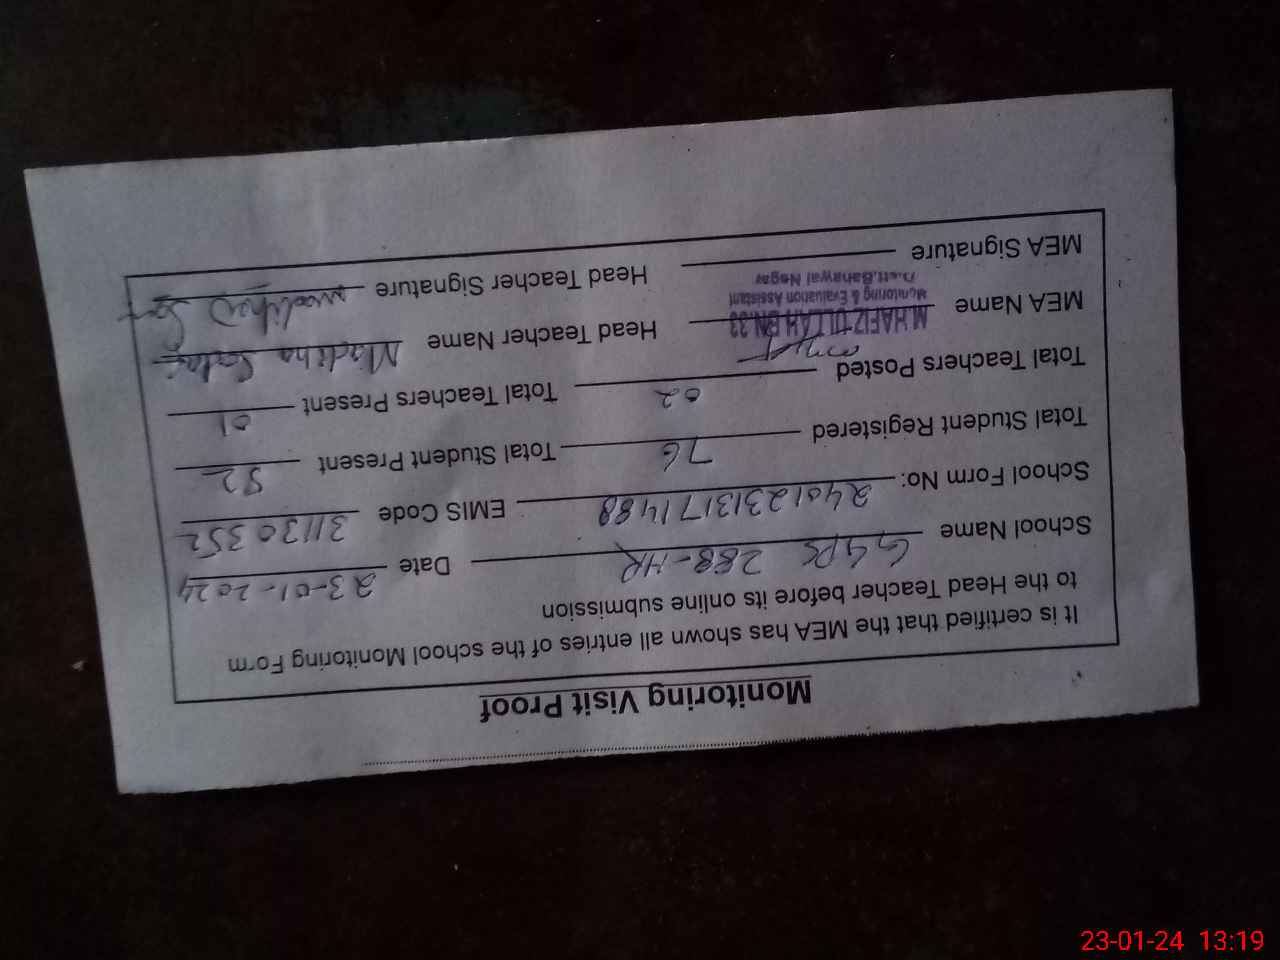 Monitoring Visit Proof
It is certified that the MEA has shown all entries of the school Monitoring Form
to the Head Teacher before its online submission
School Name GGPS 288-HR Date 23-01-2024
School Form No: 24012313171488 EMIS Code 31130352
Total Student Registered 76 Total Student Present 52
Total Teachers Posted 02 Total Teachers Present 01
MEA Name M.HAFIZ ULLAH BN.33 Head Teacher Name Madiha
Monitoring & Evaluation Assistant
Distt.Bahawal Nagar
MEA Signature Head Teacher Signature Madiha
23-01-24 13:19